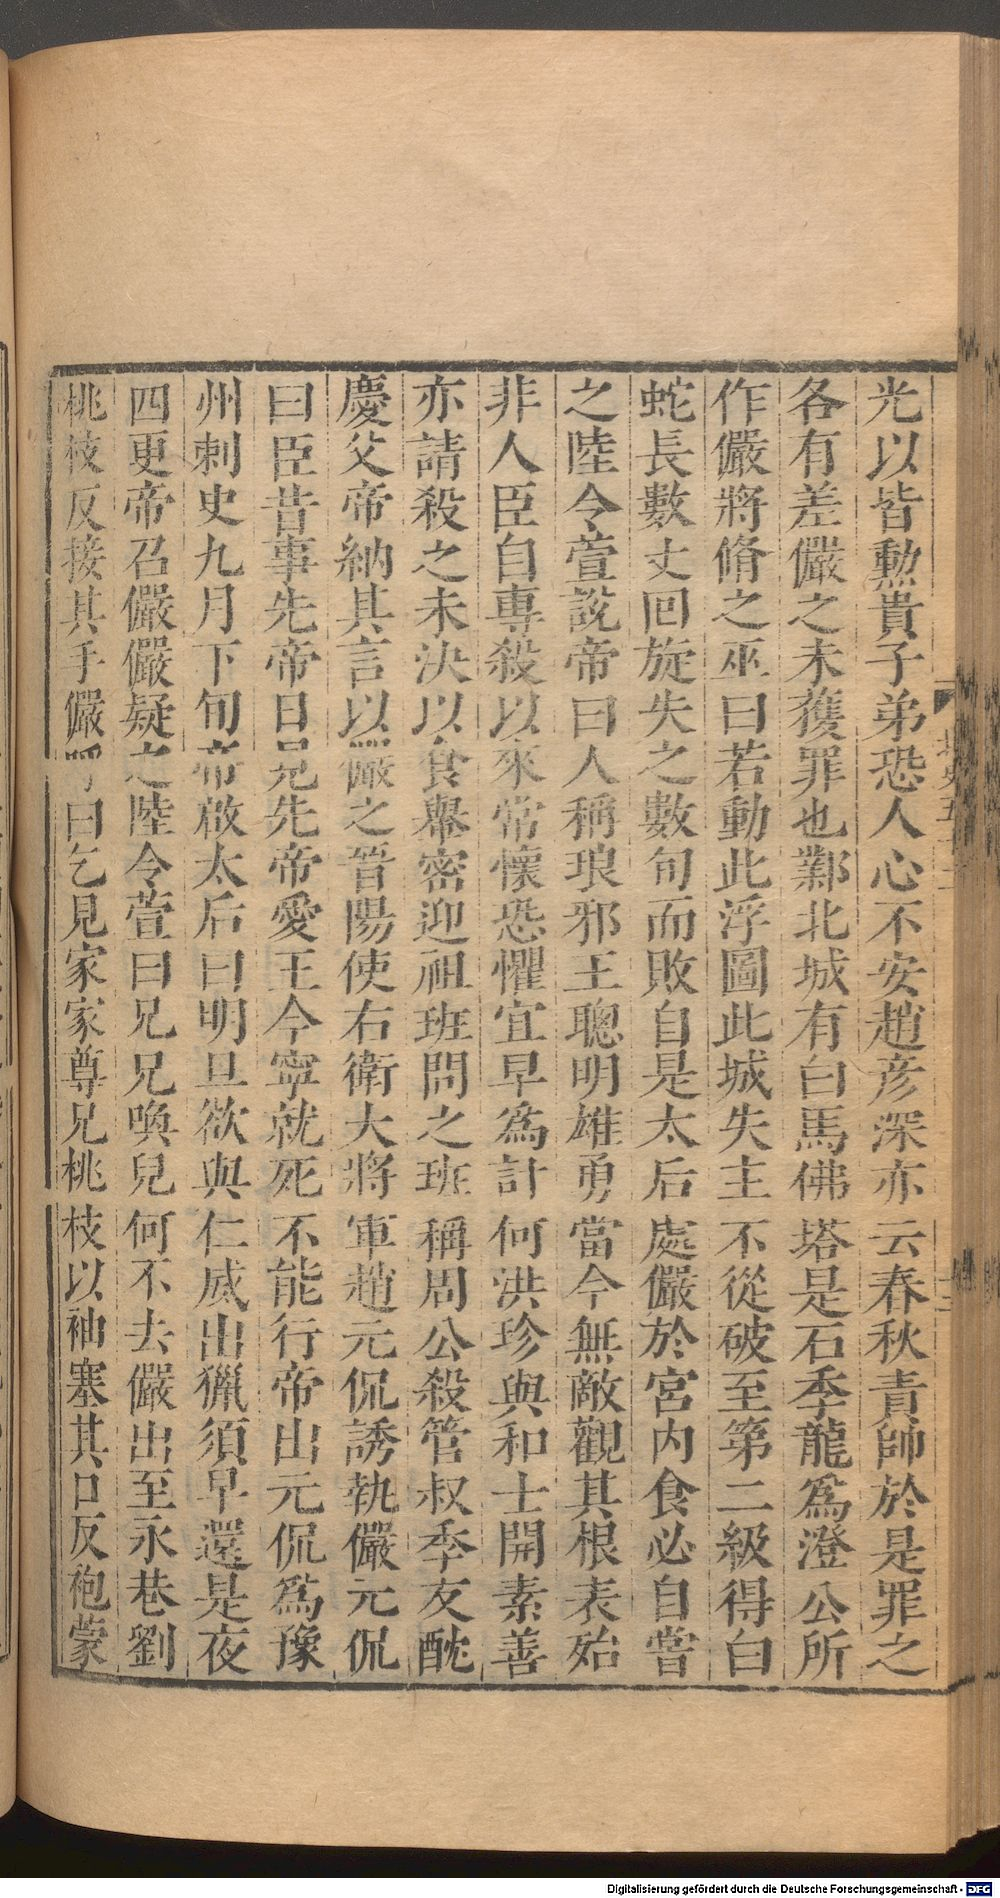 光以皆勲貴子弟恐人心不安趙彦深亦云春秋責帥於是罪之
各有差儼之未獲罪也鄴北城有白馬佛塔是石季龍爲澄公所
作儼將脩之巫曰若動此浮圖此城失主不從破至第二級得白
蛇長數丈回旋失之數旬而敗自是太后處儼於宮内食必自嘗
之陸令萱說帝曰人稱琅邪王聰明雄勇當今無敵觀其相表殆
非人臣自專殺以來常懷恐懼宜早爲計何洪珍與和士開素善
亦請殺之未決以食轝密迎祖珽問之珽稱周公殺管叔季友酖
慶父帝納其言以儼之晉陽使右衛大將軍趙元侃誘執儼元侃
曰臣昔事先帝日見先帝愛王今寧就死不能行帝出元侃爲豫
州刺史九月下旬帝啟太后曰明旦欲與仁威出獵須早還是夜
四更帝召儼儼疑之陸令萱曰兄兄喚兒何不去儼出至永巷劉
桃枝反接其手儼呼曰乞見家家尊兄桃枝以袖塞其口反袍蒙
北史五十二
Digitalisierung gefördert durch die Deutsche Forschungsgemeinschaft - DFG